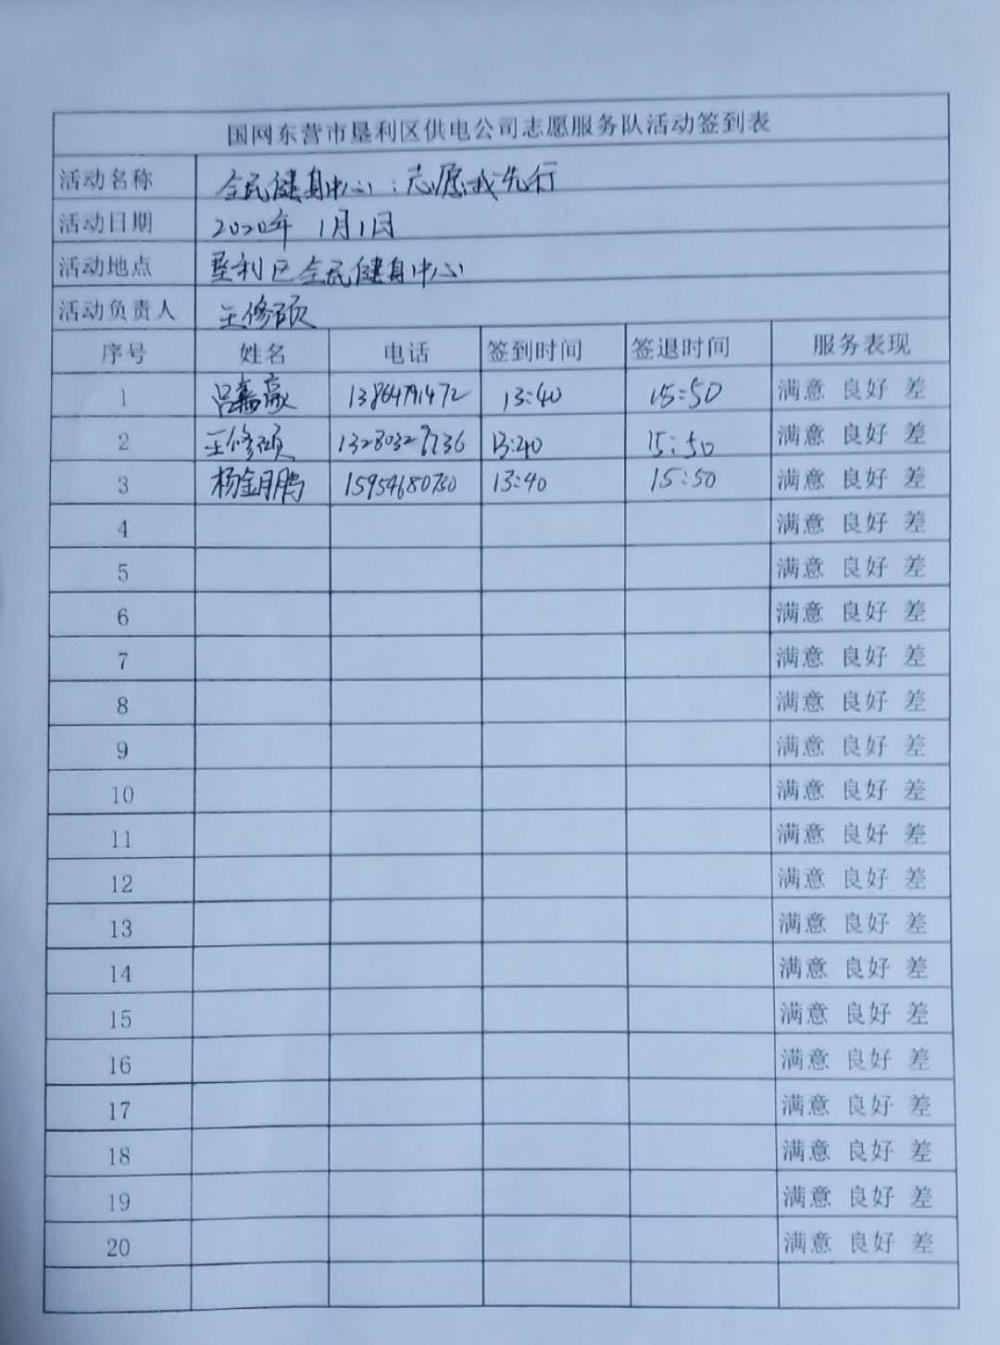 国网东营市垦利区供电公司志愿服务队活动签到表
活动名称 全民健身中心:志愿我先行
活动日期 2020年1月1日
活动地点 垦利区全民健身中心
活动负责人 王修硕
序号 姓名 电话 签到时间 签退时间 服务表现
1 吕嘉豪 13864791472 13:40 15:50 满意 良好 差
2 王修硕 13:40 15:50 满意 良好 差
3 杨金鹏 13:40 15:50 满意 良好 差
4 满意 良好 差
5 满意 良好 差
6 满意 良好 差
7 满意 良好 差
8 满意 良好 差
9 满意 良好 差
10 满意 良好 差
11 满意 良好 差
12 满意 良好 差
13 满意 良好 差
14 满意 良好 差
15 满意 良好 差
16 满意 良好 差
17 满意 良好 差
18 满意 良好 差
19 满意 良好 差
20 满意 良好 差